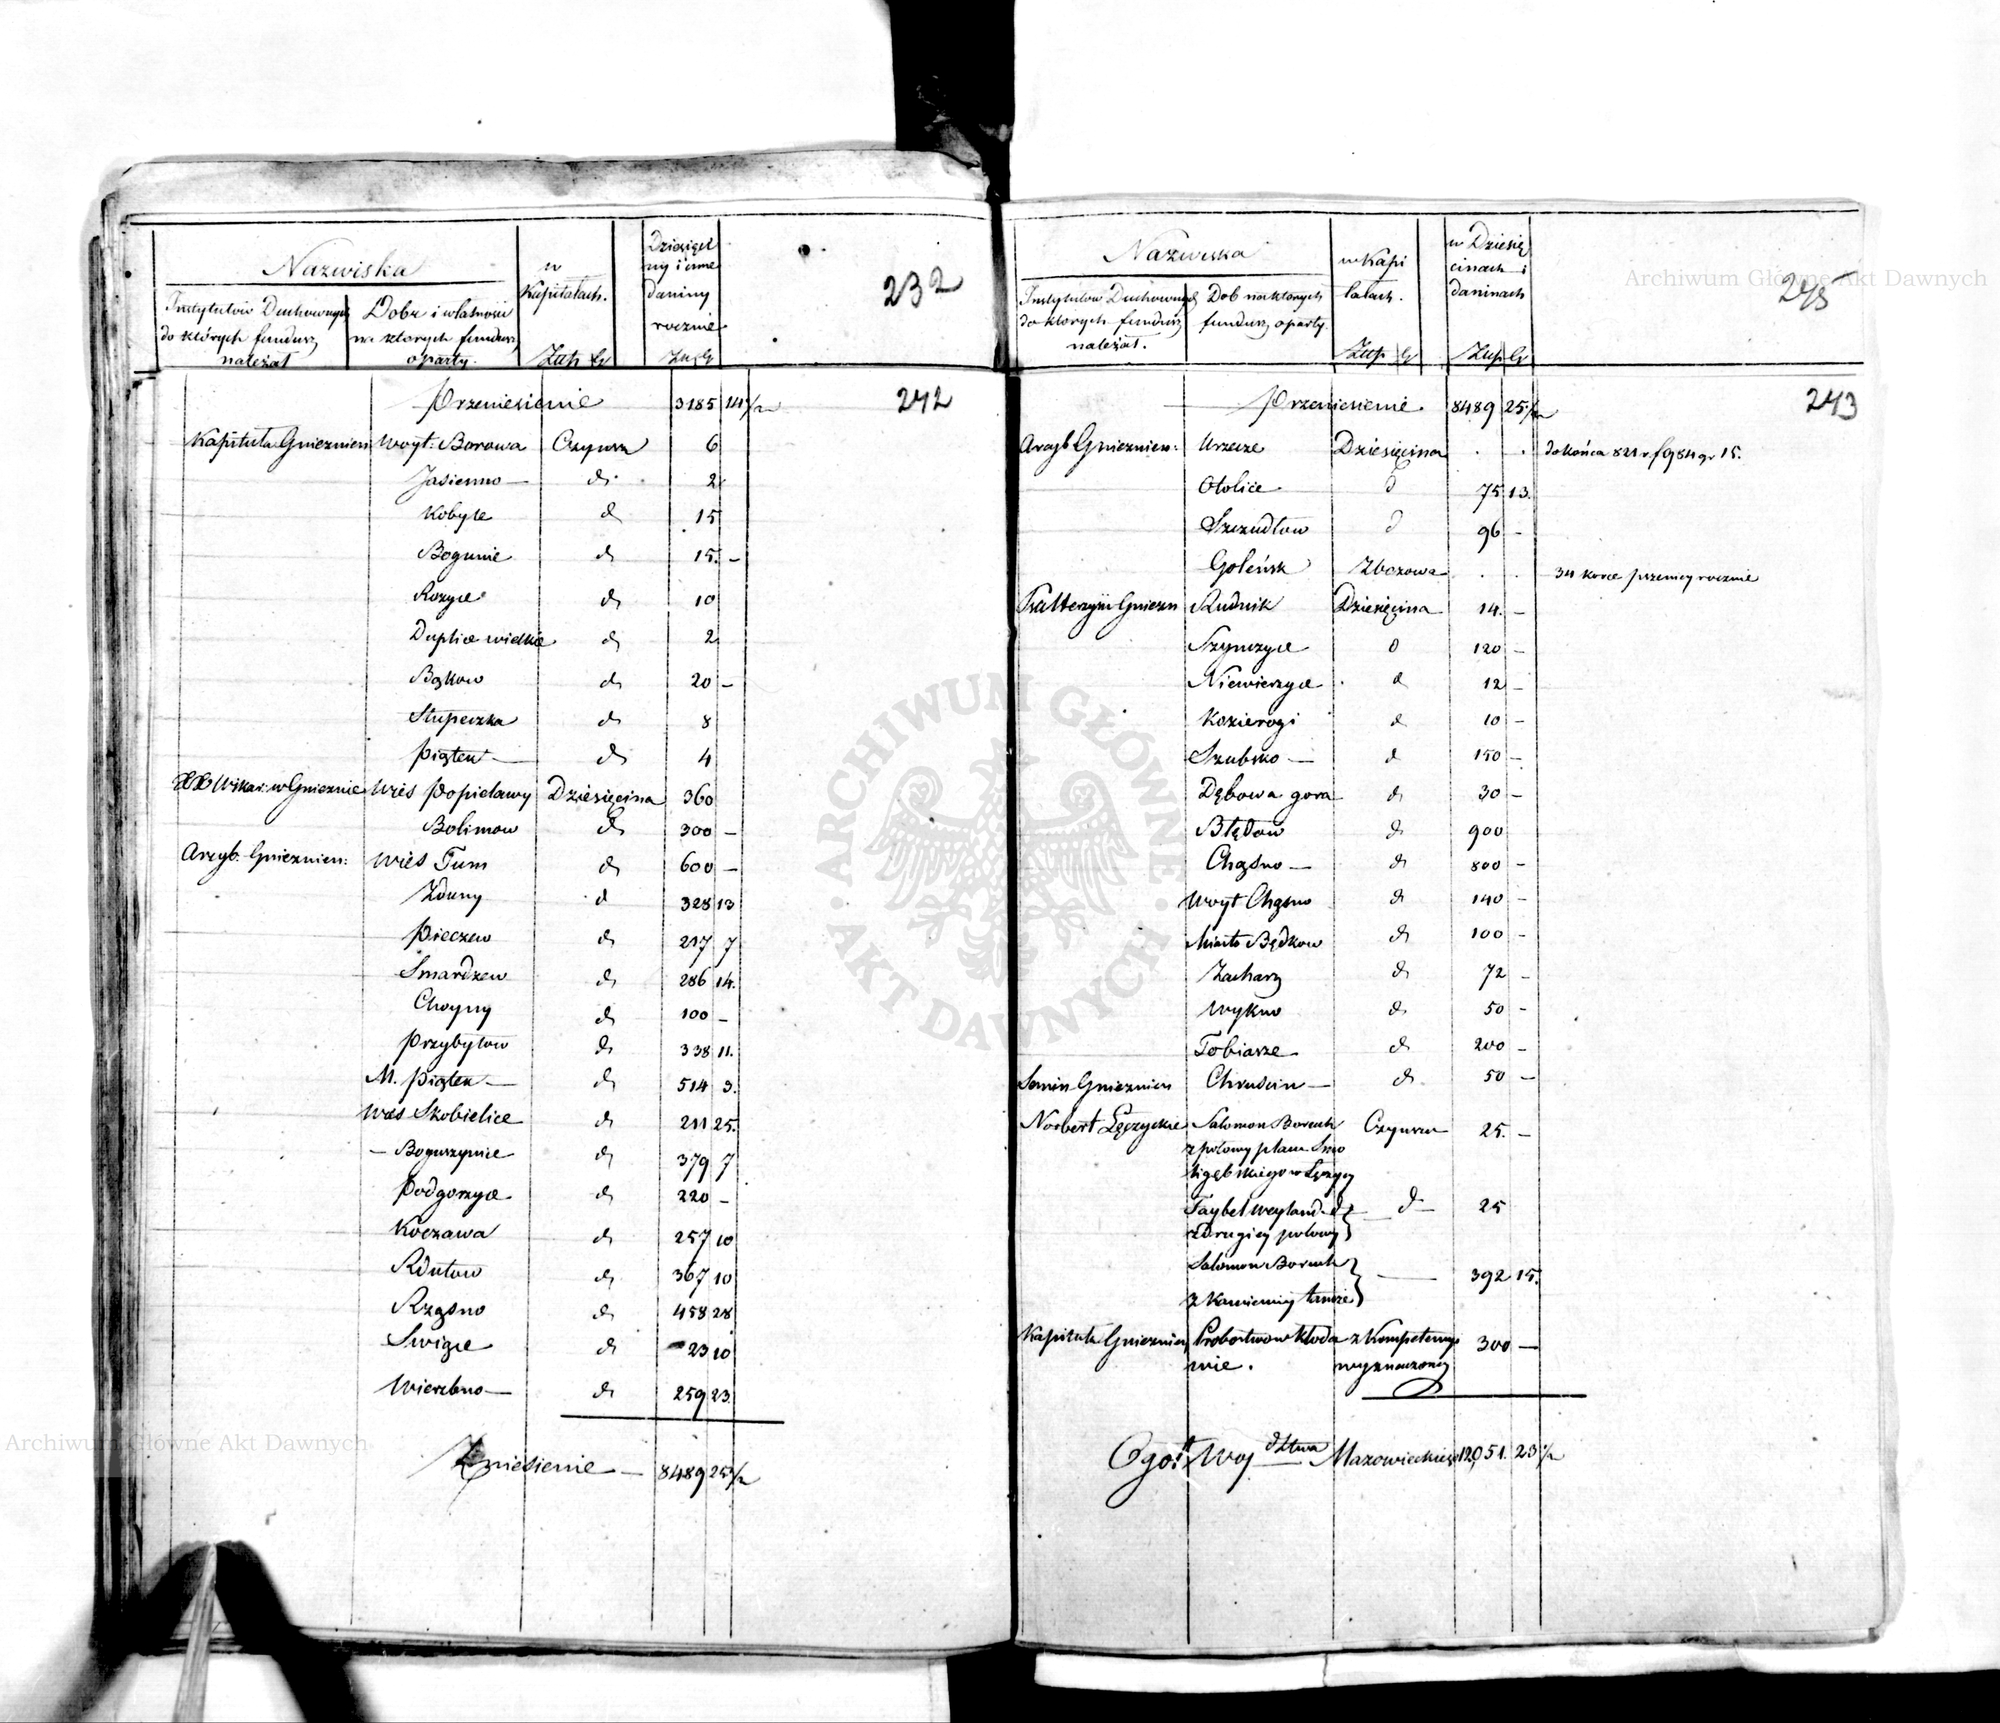 Nazwiska
Instytutów Duchownych do których fundusz należał
Dobr i własności na ktorych fundusz oparty.
w Kapitałach.
Złp Gr
Dziesięci
ny i inne
daniny
rocznie
Zł Gr
232
Przeniesienie 3185 14 1/2
242
Kapituła Gnieznien Woyt: Borowa Czynsz 6
Jasionno — d. 2
Kobyle d 15
Bogunie d 15. —
Rozyce d 10
Duplice wielkie d 2
Bąkow d 20 —
Stupeczka d 8
Piątek — d 4
XX Wikar: w Gnieznie Wies Popielawy Dziesięcina 360
Bolimow d 300 —
Arzyb. Gnieznien: Wieś Tum d 600 —
Zduny d 328 13
Pieczew d 217 7
Smardzew d 286 14.
Choyny d 100 —
Przybyłow d 338 11.
M. Piątek — d 514 3.
Wies Skobielice d 211 25.
— Boguszynice d 379 7
Podgorzyce d 220 —
Koczawa d 257 10
Rdutow d 367 10
Rząsno d 458 28
Swigie d 23 10
Wierzbno — d 259 23.
Zniesienie — 8489 25 1/2
Archiwum Główne Akt Dawnych
Nazwiska
Instytutów Duchownych
do ktorych fundusz
należał.
Dob na ktorych
fundusz oparty.
w Kapi
tałach.
Złp Gr
w Dziesię
cinach i
daninach
Złp Gr
Archiwum Główne Akt Dawnych
Przeniesienie. 8489 25 1/2
243
Arcyb Gnieznien: Urzecze Dziesięcina . . do końca 821 r f 984 gr 15.
Otolice d 75 13.
Szczudłow d 96 —
Goleńsk Zbozowa . . 34 korce pszenicy rocznie
Psalterzyści Gniezn Rudnik Dziesięcina 14. —
Szynczyce d 120 —
Niewierzyce d 12 —
Kozierogi d 10 —
Szubsko — d 150 —
Dębowa gora d 30 —
Błędow d 900
Chąsno — d 800 —
Woyt Chąsno d 140 —
Miasto Będkow d 100 —
Zacharz d 72 —
Wykno d 50 —
Tobiasze d 200 —
Semin Gnieznien Chruscin — d 50 —
Norbert Łęczyckie Salomon Boruch Czynsz 25. —
z połowy placu Smo
ligębskiego w Łęczycy
Taybel Weyland — d — 25
z drugiey połowy
Salomon Boruch — 392 15.
z Kamienicy tamże
Kapituła Gnieznien Probostwo w Kłoda z Kompetencyi 300 —
wie. wyznaczoney
Ogoł Wojdztwa Mazowieckiego 12051. 23 1/2
ARCHIWUM GŁÓWNE AKT DAWNYCH